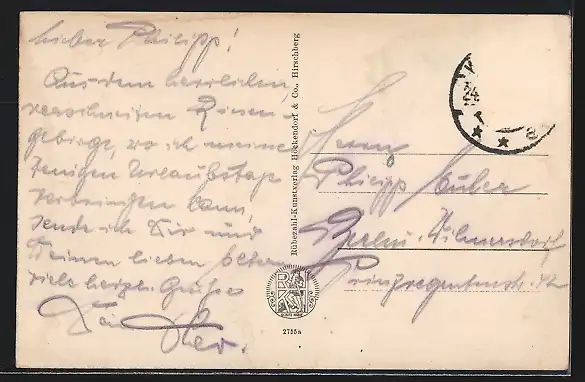 Lieber Philipp!
Aus dem herrlichen,
verschneiten Riesen-
gebirge, wo ich meine
wenigen Urlaubstage
verbringen kann,
sende ich Dir und
Deinen lieben Eltern
viele herzl. Grüße
Dein
Rübezahl-Kunstverlag Höckendorf & Co., Hirschberg
2755a
24
a
Herrn
Philipp
Berlin-Wilmersdorf
Prinzregentenstr.